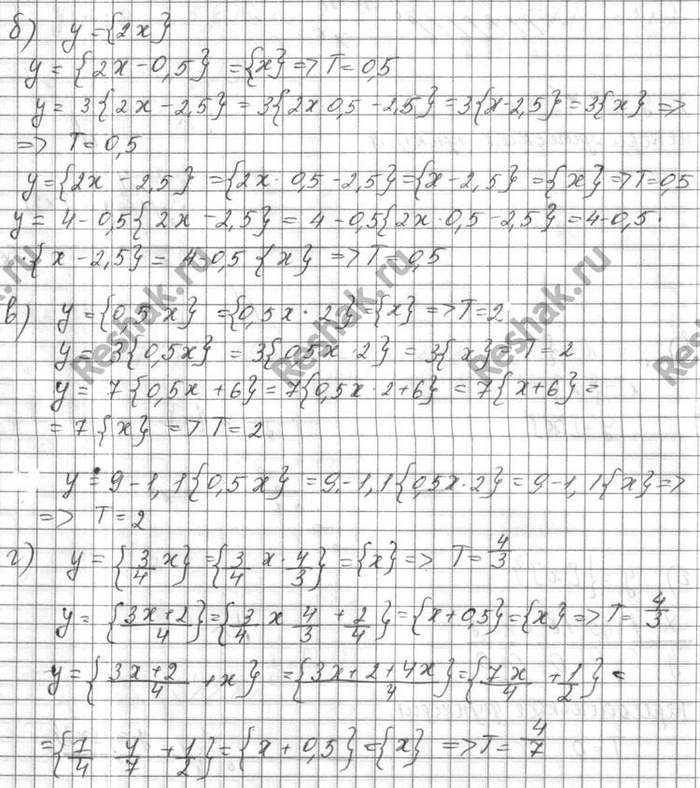 б) y = {2x}
y = {2x - 0,5} = {x} => T = 0,5
y = 3{2x - 2,5} = 3{2x·0,5 - 2,5} = 3{x - 2,5} = 3{x} =>
=> T = 0,5
y = {2x - 2,5} = {2x · 0,5 - 2,5} = {x - 2,5} = {x} => T = 0,5
y = 4 - 0,5{2x - 2,5} = 4 - 0,5{2x · 0,5 - 2,5} = 4 - 0,5 ·
· {x - 2,5} = 4 - 0,5 {x} => T = 0,5
в) y = {0,5x} = {0,5x · 2} = {x} => T = 2
y = 3{0,5x} = 3{0,5x · 2} = 3{x} T = 2
y = 7{0,5x + 6} = 7{0,5x · 2 + 6} = 7{x + 6} =
= 7{x} => T = 2
y = 9 - 1,1{0,5x} = 9 - 1,1{0,5x · 2} = 9 - 1,1{x} =>
=> T = 2
г) y = {3/4 x} = {3/4 x · 4/3} = {x} => T = 4/3
y = {3x+2/4} = {3/4 x 4/3 + 2/4} = {x + 0,5} = {x} => T = 4/3
y = {3x+2/4 + x} = {3x+2+4x/4} = {7x/4 + 1/2} =
= {7/4 4/7 + 1/2} = {x + 0,5} = {x} => T = 4/7
Reshak.ru
Reshak.ru
Reshak.ru
Reshak.ru